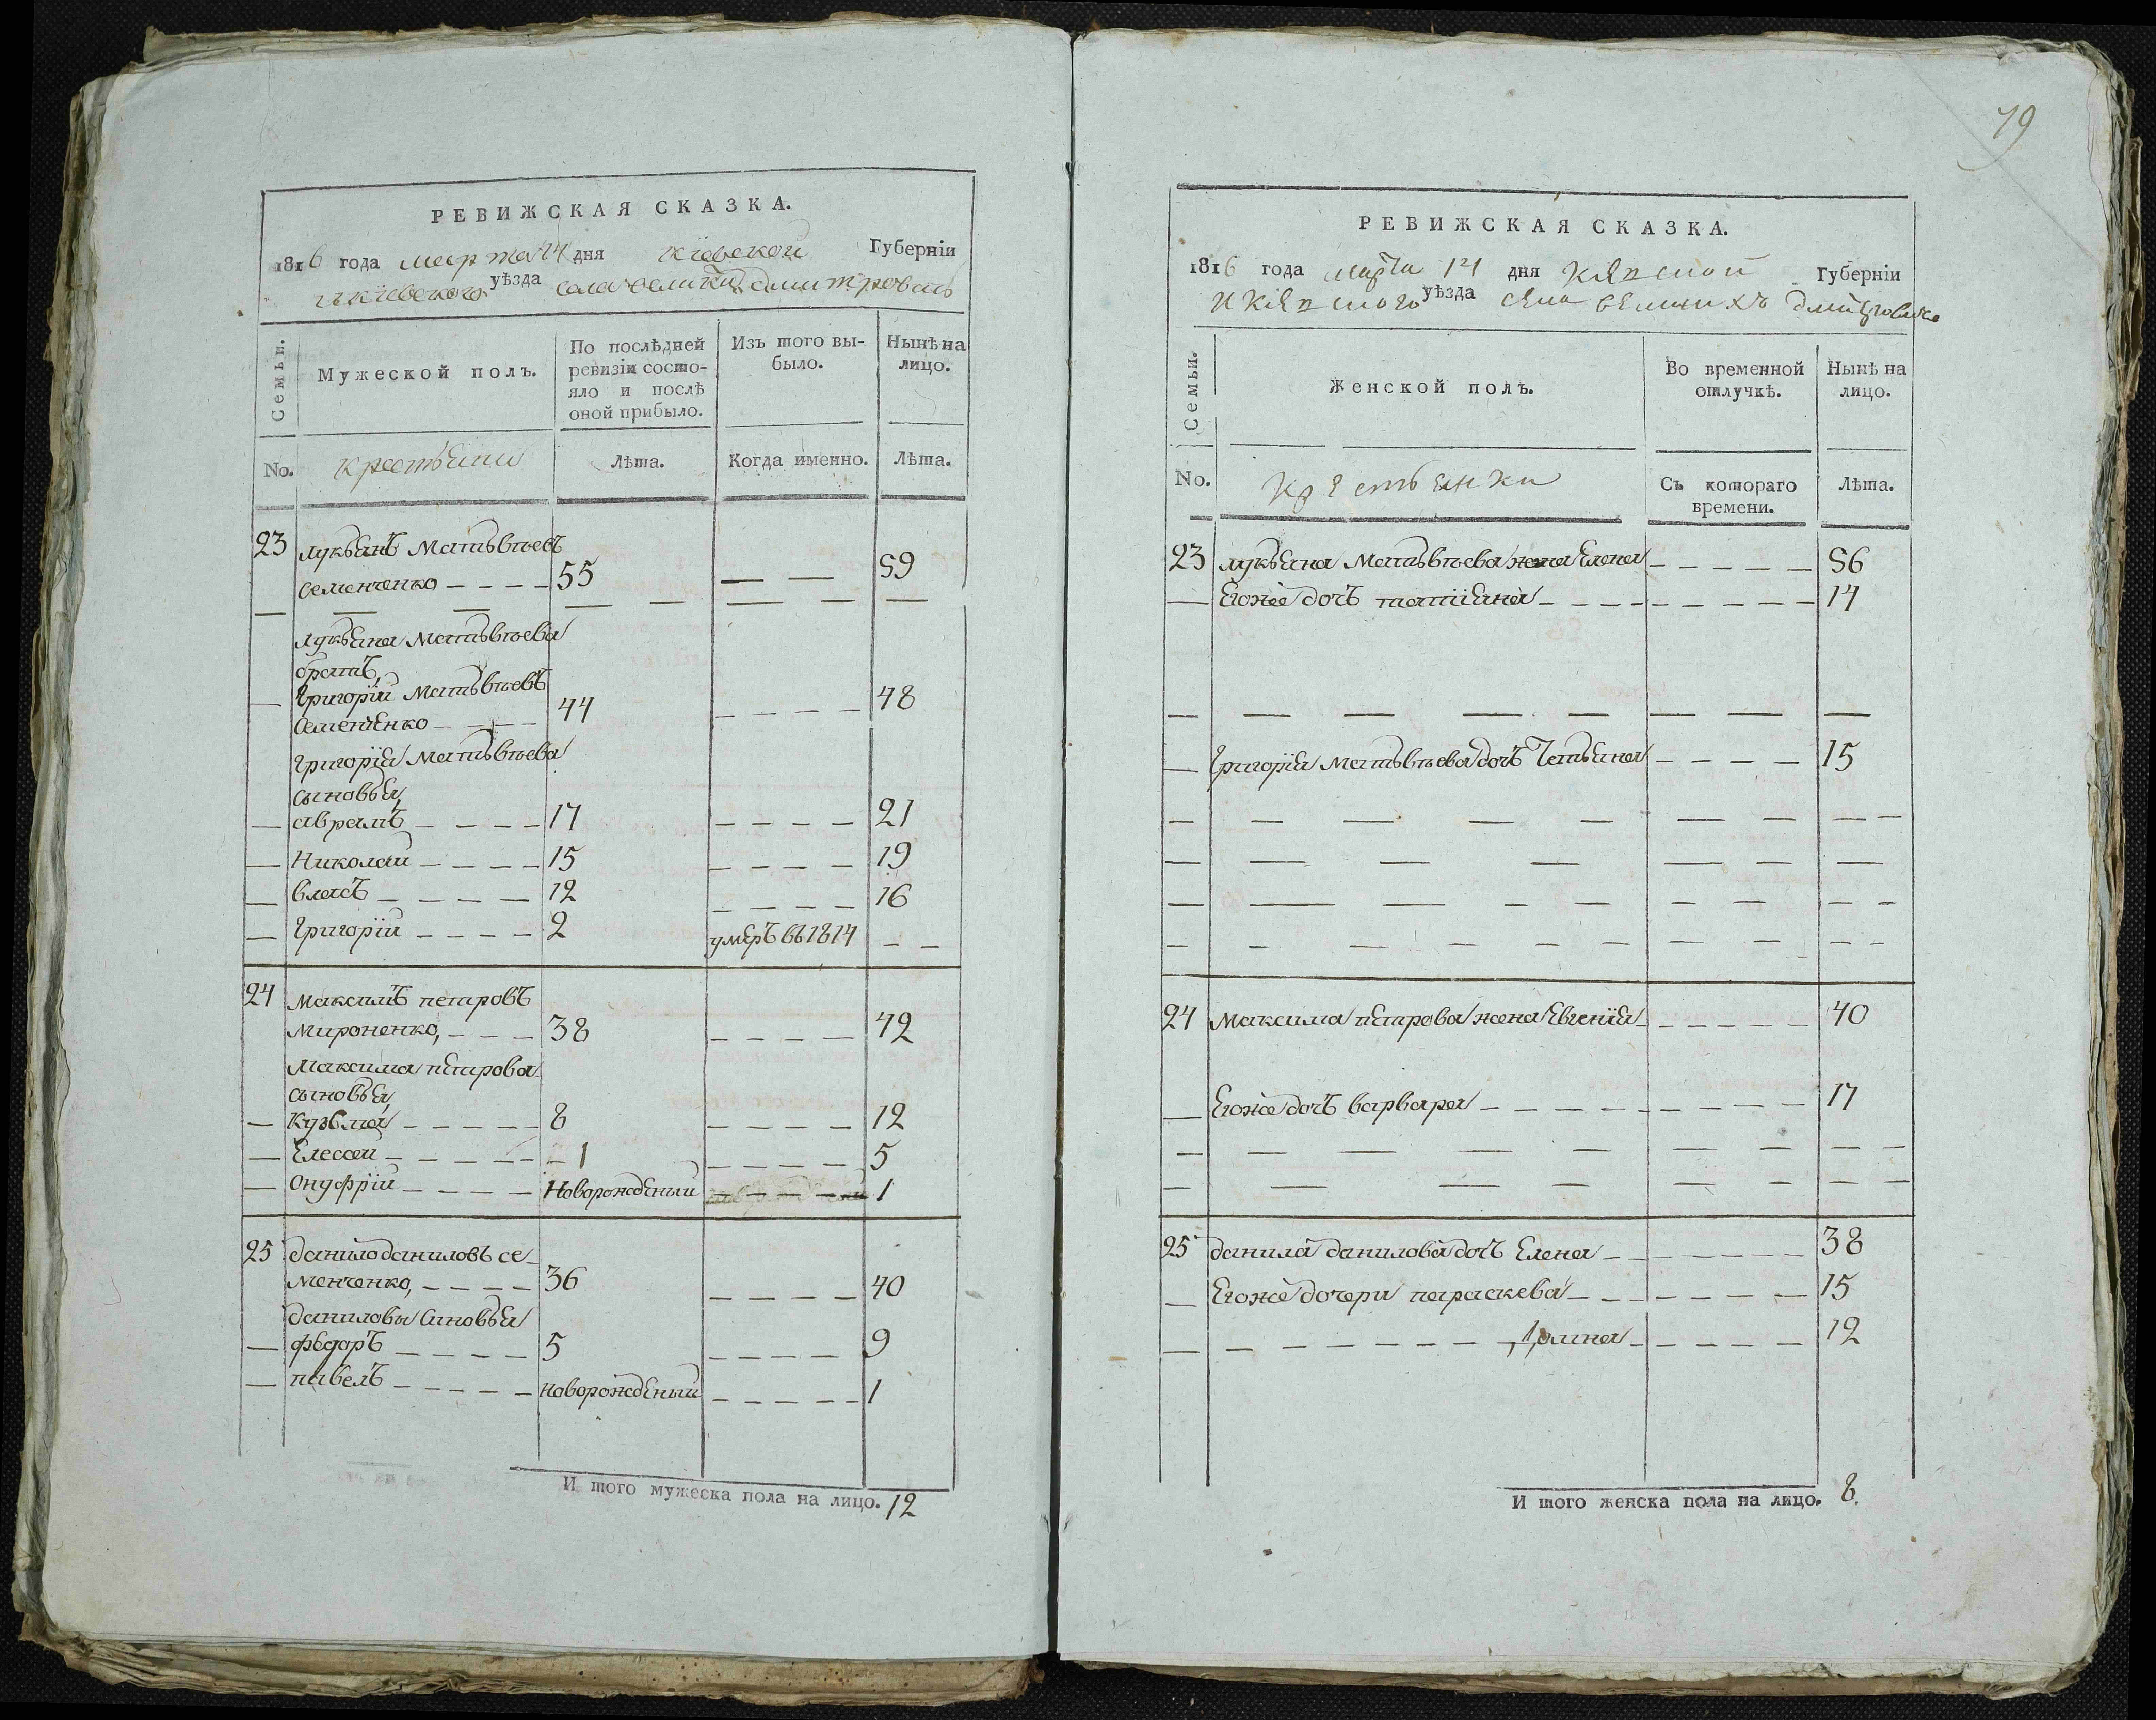 РЕВИЖСКАЯ СКАЗКА.
1816 года марта 14 дня кіевской Губерніи
и кіевского уѣзда села великихъ дмитровокъ
Семьи.
Мужеской полъ.
По послѣдней
ревизіи состо-
яло и послѣ
оной прибыло.
Изъ того вы-
было.
Нынѣ на
лицо.
No. крестьяни Лѣта. Когда именно. Лѣта.
23 лукьянъ Матьвѣевъ
семенченко — — — — 55 — — 59
лукьяна Матьвѣева
братъ,
григорій Матьвѣевъ
Семенченко — — — — 44 — — — — 48
григорія Матьвѣева
сыновья,
аврамъ — — — — 17 — — — — 21
Николай — — — — 15 — — — — 19
власъ — — — — 12 — — — — 16
григорій — — — — 2 умеръ въ 1814 — —
24 Максимъ петровъ
мироненко, — — — 38 — — — — 42
Максима петрова
сыновья,
кузьма — — — — — 8 — — — — 12
Елесей — — — — — 1 — — — — 5
онуфрій — — — — Новорожденый — — — — 1
25 данило даниловъ се-
менченко, — — — — 36 — — — — 40
даниловы синовья
федоръ — — — — 5 — — — — 9
павелъ — — — — — новорожденый — — — — — 1
И того мужеска пола на лицо. 12
79
РЕВИЖСКАЯ СКАЗКА.
1816 года марта 14 дня Кіевской Губерніи
и Кіевского уѣзда села великихъ дмитровокъ
Семьи.
Женской полъ.
Во временной
отлучкѣ.
Нынѣ на
лицо.
No. крестьянки Съ котораго
времени. Лѣта.
23 лукьяна Матьвѣева жена Елена — — — — — 56
— Егоже дочъ татіяна — — — — — — — — 14
— григорія Матьвѣева дочъ Татьяна — — — — 15
24 Максима петрова жена Евгенія — — — — — 40
— Егоже дочъ варвара — — — — — — — — 17
25 данила данилова дочъ Елена — — — — — — 38
— Егоже дочери параскева — — — — — — — 15
— — — — — — — — — — — — — — 12
И того женска пола на лицо. 8.